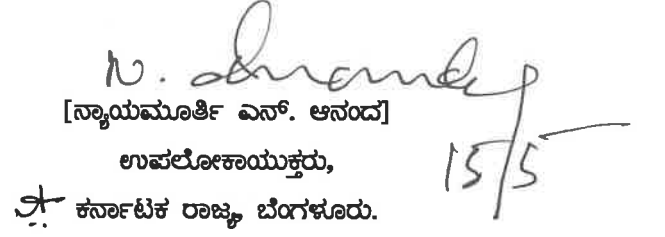 N. Ananda
[ನ್ಯಾಯಮೂರ್ತಿ ಎನ್. ಆನಂದ]
15/5
ಉಪಲೋಕಾಯುಕ್ತರು,
ಕರ್ನಾಟಕ ರಾಜ್ಯ, ಬೆಂಗಳೂರು.